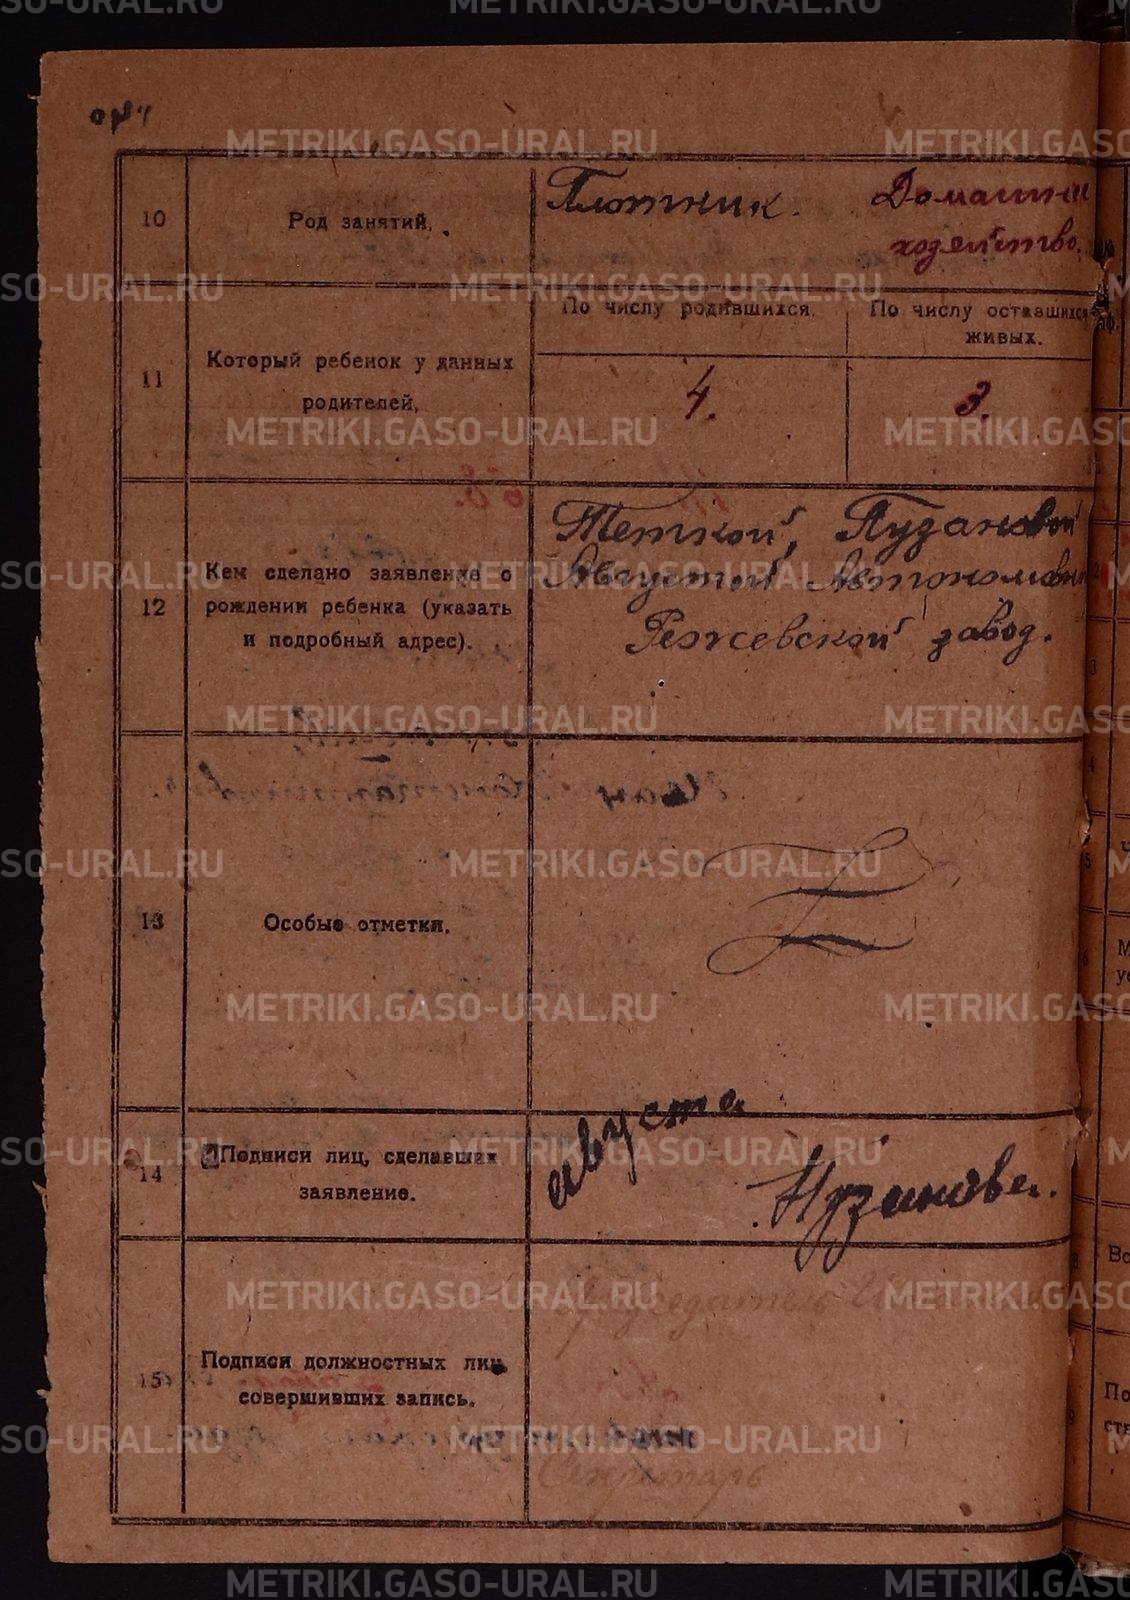 10
Род занятий.
Плотник.
Домашнее
хозейство.
11
Который ребенок у данных
родителей,
По числу родившихся.
4.
По числу оставшихся
живых.
3.
12
Кем сделано заявление о
рождении ребенка (указать
и подробный адрес).
Теткой, Пузановой
Августой Автономовн
Режевской завод.
13
Особые отметки.
14
Подписи лиц, сделавших
заявление.
августа
Пузанова.
15
Подписи должностных лиц,
совершивших запись.
Председатель
Секретарь
METRIKI.GASO-URAL.RU